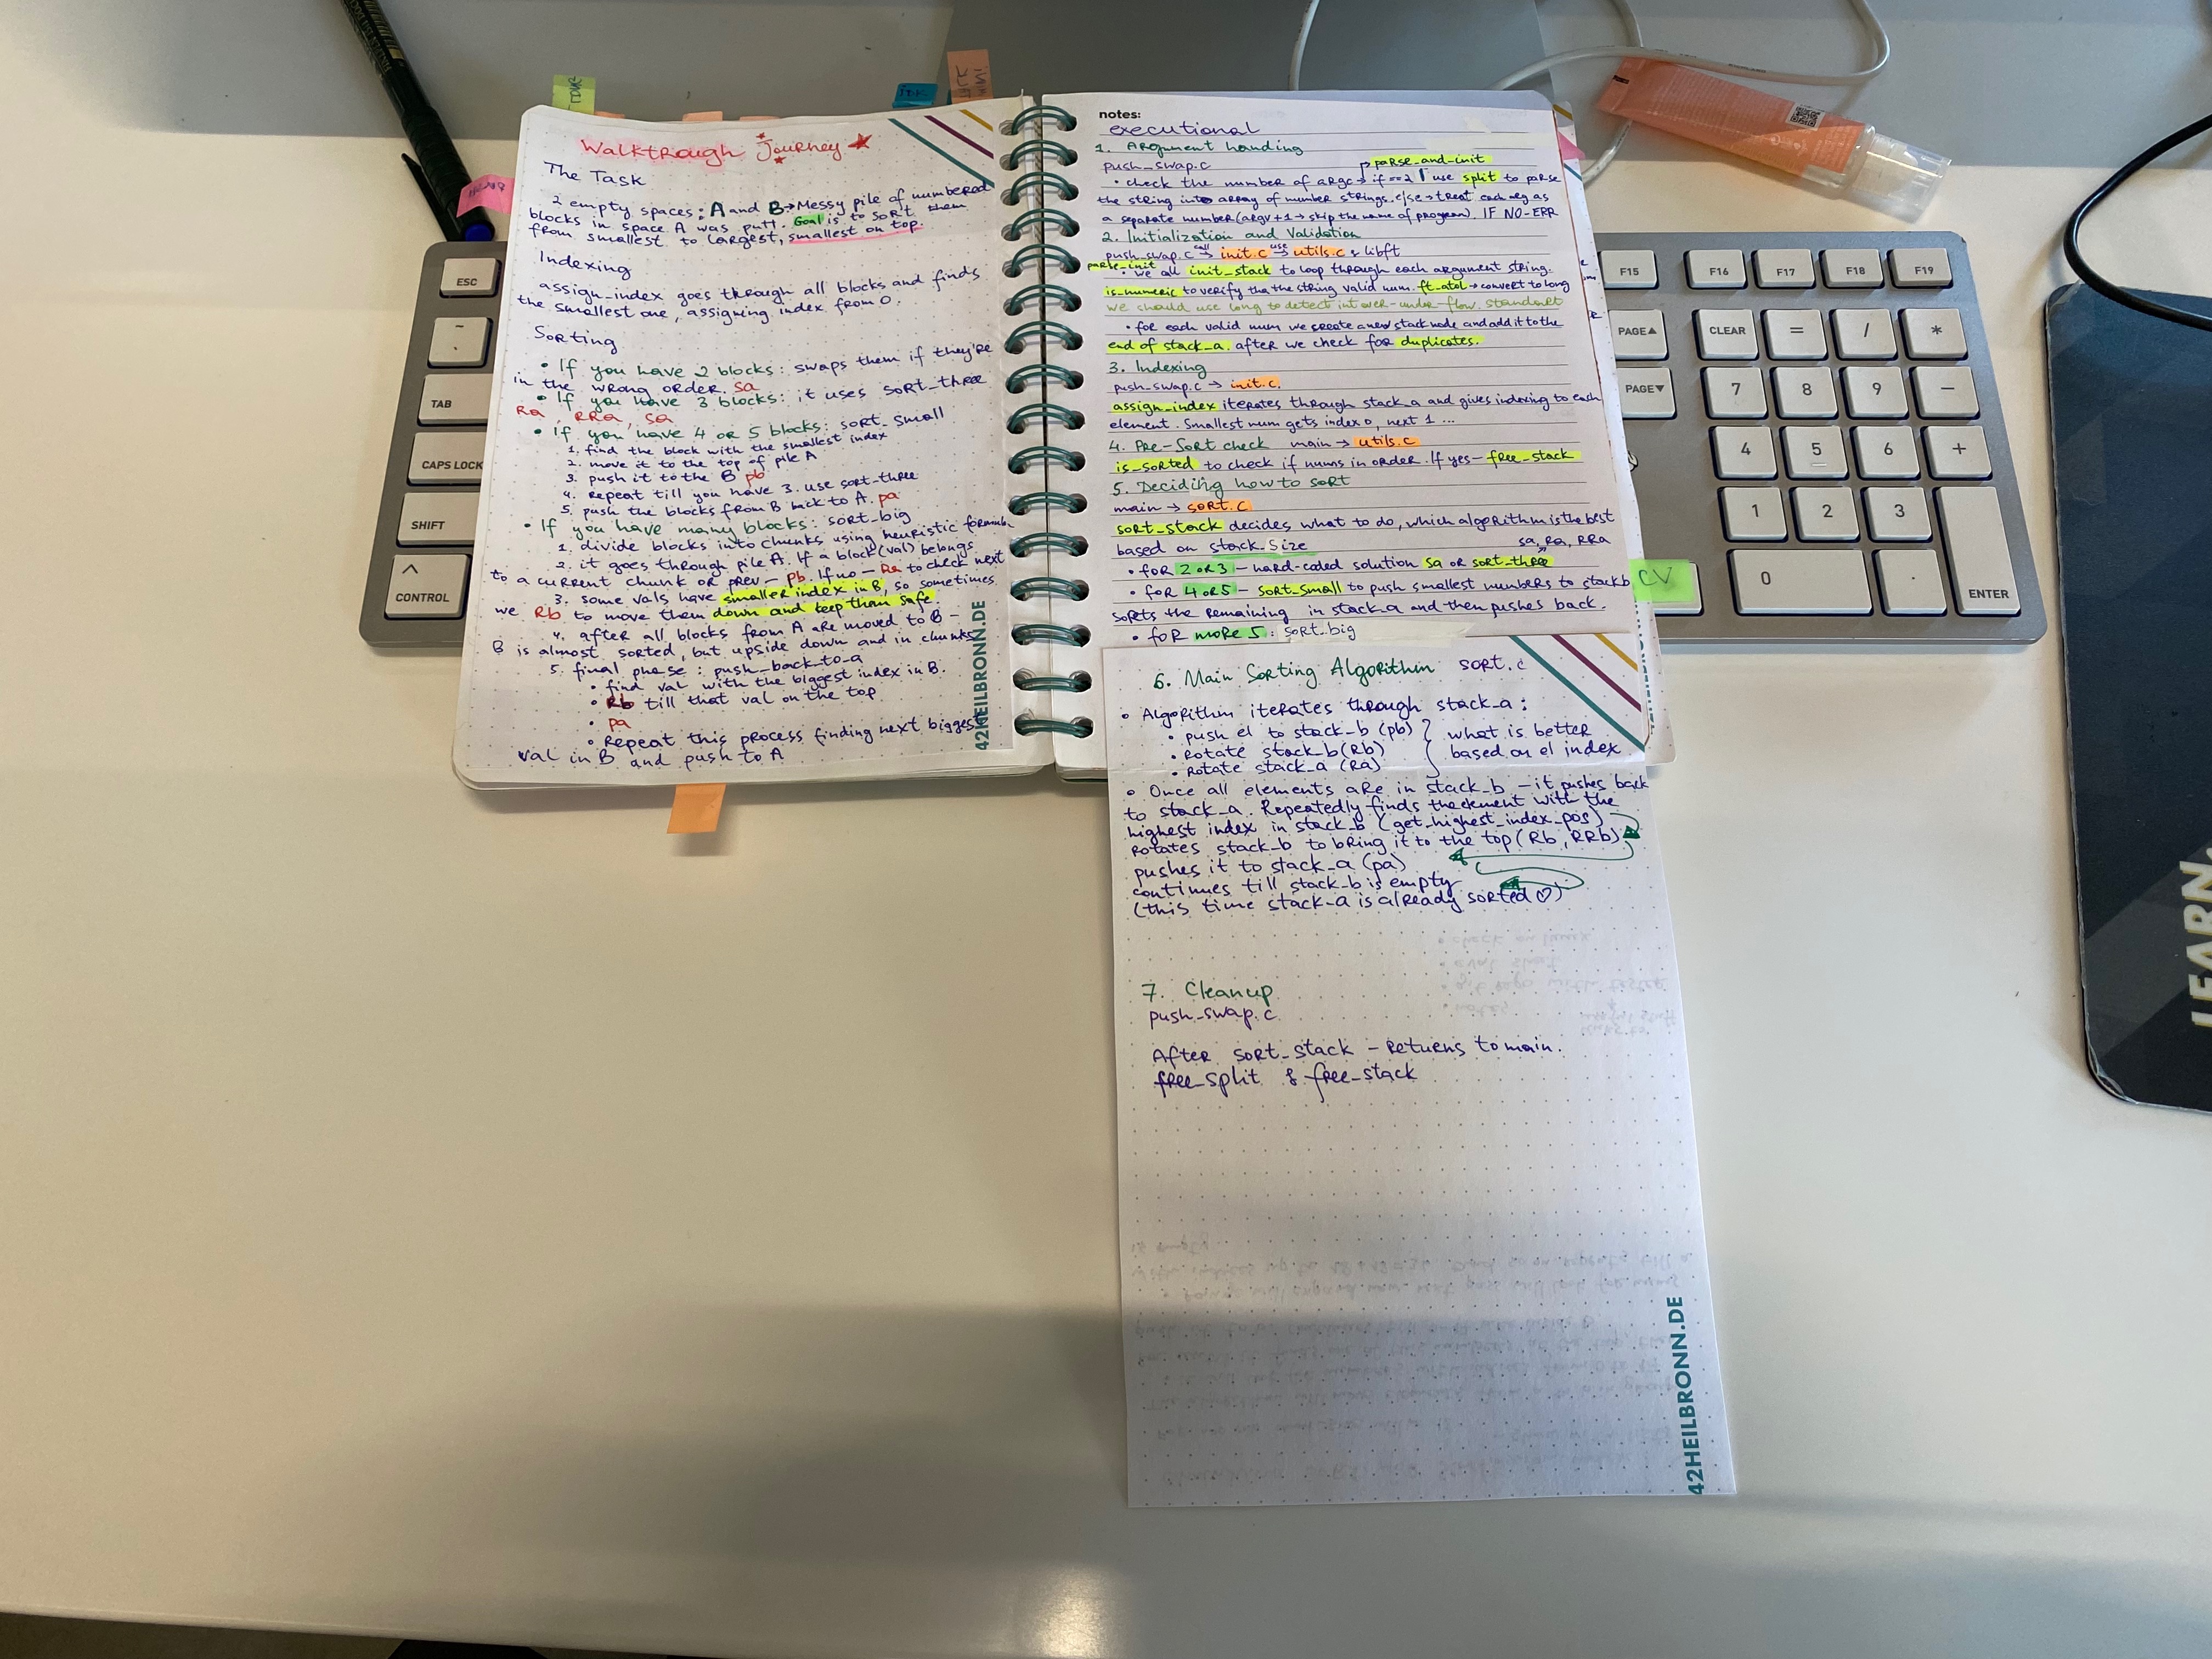 Walktrough Journey
The Task
2 empty spaces: A and B → Messy pile of numbered
blocks in space A was putt. Goal is to sort them
from smallest to largest, smallest on top.
Indexing
assign_index goes through all blocks and finds
the smallest one, assigning index from 0.
Sorting
• If you have 2 blocks: swaps them if they're
in the wrong order. sa
• If you have 3 blocks: it uses sort_three
Ra, RRa, sa
• If you have 4 or 5 blocks: sort_small
1. find the block with the smallest index
2. move it to the top of pile A
3. push it to the B pb
4. repeat till you have 3. use sort_three
5. push the blocks from B back to A. pa
• If you have many blocks: sort_big
1. divide blocks into chunks using heuristic formula.
2. it goes through pile A. If a block (val) belongs
to a current chunk or prev – pb. If no – Ra to check next
3. some vals have smaller index in B, so sometimes
we Rb to move them down and keep them safe
4. after all blocks from A are moved to B –
B is almost sorted, but upside down and in chunks
5. final phase: push_back_to_a
• find val with the biggest index in B.
• Rb till that val on the top
• pa
• Repeat this process finding next biggest
val in B and push to A
42HEILBRONN.DE
notes:
executional
1. Argument handing
push_swap.c
parse_and_init
• check the number of argc → if ==2 use split to parse
the string into array of number strings. else → treat each arg as
a separate number (argv+1 → skip the name of program). IF NO-ERR
2. Initialization and Validation
push_swap.c call → init.c use → utils.c & libft
parse_init
• we all init_stack to loop through each argument string.
is_numeric to verify that the string valid num. ft_atol → convert to long
we should use long to detect int over-under-flow. standart
• for each valid num we create a new stack node and add it to the
end of stack_a. after we check for duplicates.
3. Indexing
push_swap.c → init.c.
assign_index iterates through stack_a and gives indexing to each
element. Smallest num gets index 0, next 1 ...
4. Pre-Sort check main → utils.c
is_sorted to check if nums in order. If yes – free_stack
5. Deciding how to sort
main → sort.c
sort_stack decides what to do, which algorithm is the best
based on stack_size
sa, Ra, RRa
• for 2 or 3 – hard-coded solution sa or sort_three
• for 4 or 5 – sort_small to push smallest numbers to stack b
sorts the remaining in stack_a and then pushes back.
• for more 5: sort_big
6. Main Sorting Algorithm sort.c
• Algorithm iterates through stack_a:
• push el to stack_b (pb)
• rotate stack_b (Rb)
• rotate stack_a (Ra)
what is better
based on el index
• Once all elements are in stack_b – it pushes back
to stack_a. Repeatedly finds the element with the
highest index in stack_b (get_highest_index_pos)
Rotates stack_b to bring it to the top (Rb, RRb)
pushes it to stack_a (pa)
continues till stack_b is empty
(this time stack_a is already sorted ♡)
7. Cleanup
push_swap.c
After sort_stack – returns to main.
free_split & free_stack
42HEILBRONN.DE
ESC
TAB
CAPS LOCK
SHIFT
^
CONTROL
F15 F16 F17 F18 F19
PAGE▲ CLEAR = / *
PAGE▼ 7 8 9 –
4 5 6 +
1 2 3
0 . ENTER
CV
IDK
LEARN.